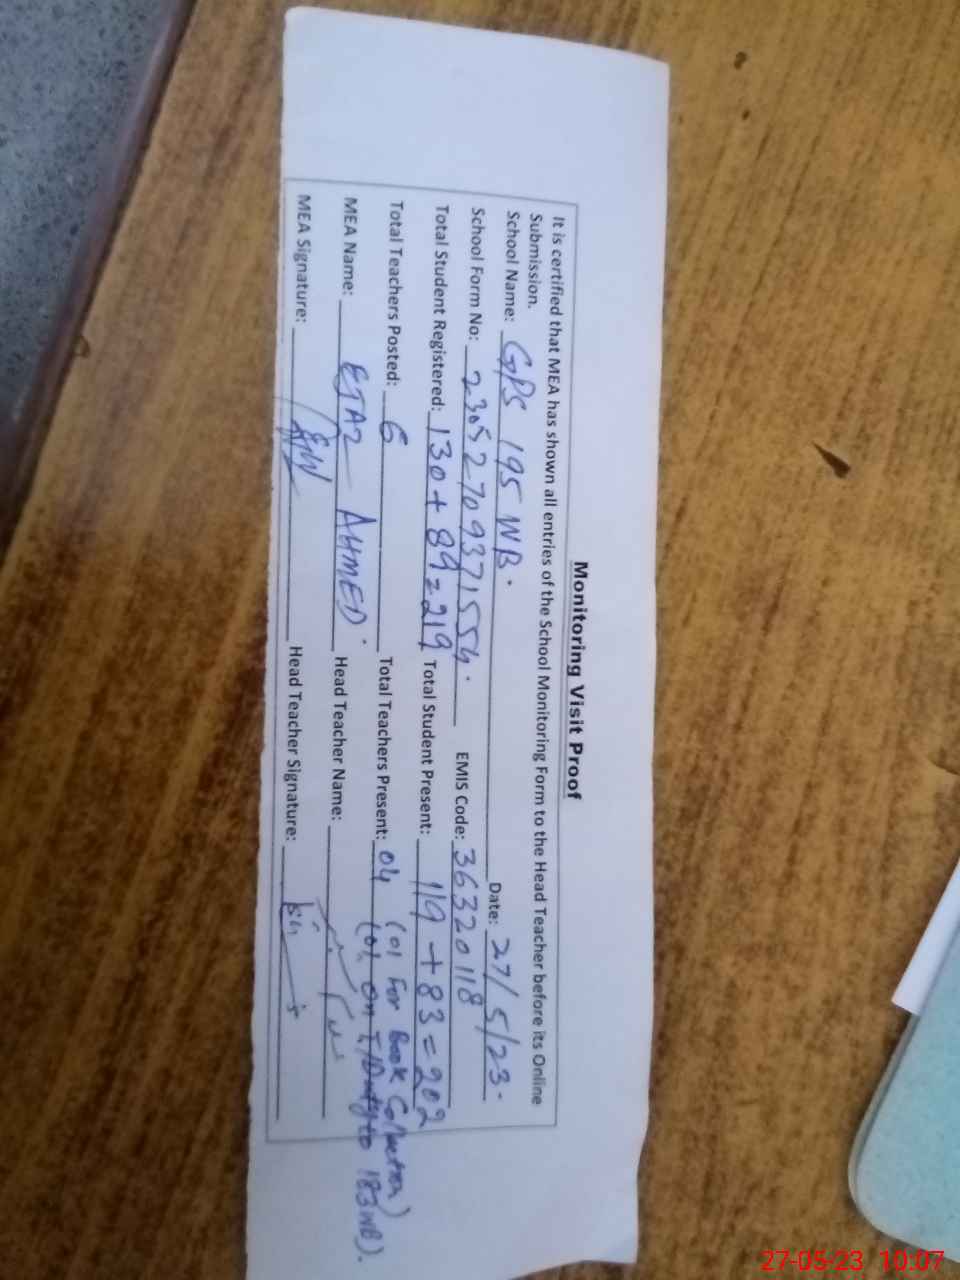 Monitoring Visit Proof
It is certified that MEA has shown all entries of the School Monitoring Form to the Head Teacher before its Online
Submission.
School Name: GPS 195 WB. Date: 27/5/23-
School Form No: 23052709371554. EMIS Code: 36320118
Total Student Registered: 130 + 89 = 219 Total Student Present: 119 + 83 = 202
Total Teachers Posted: 6 Total Teachers Present: 04 (01 For Book Collection)
(01 on T/Duty to 183 WB).
MEA Name: EJAZ AHMED. Head Teacher Name:
MEA Signature: Head Teacher Signature:
27-05-23 10:07